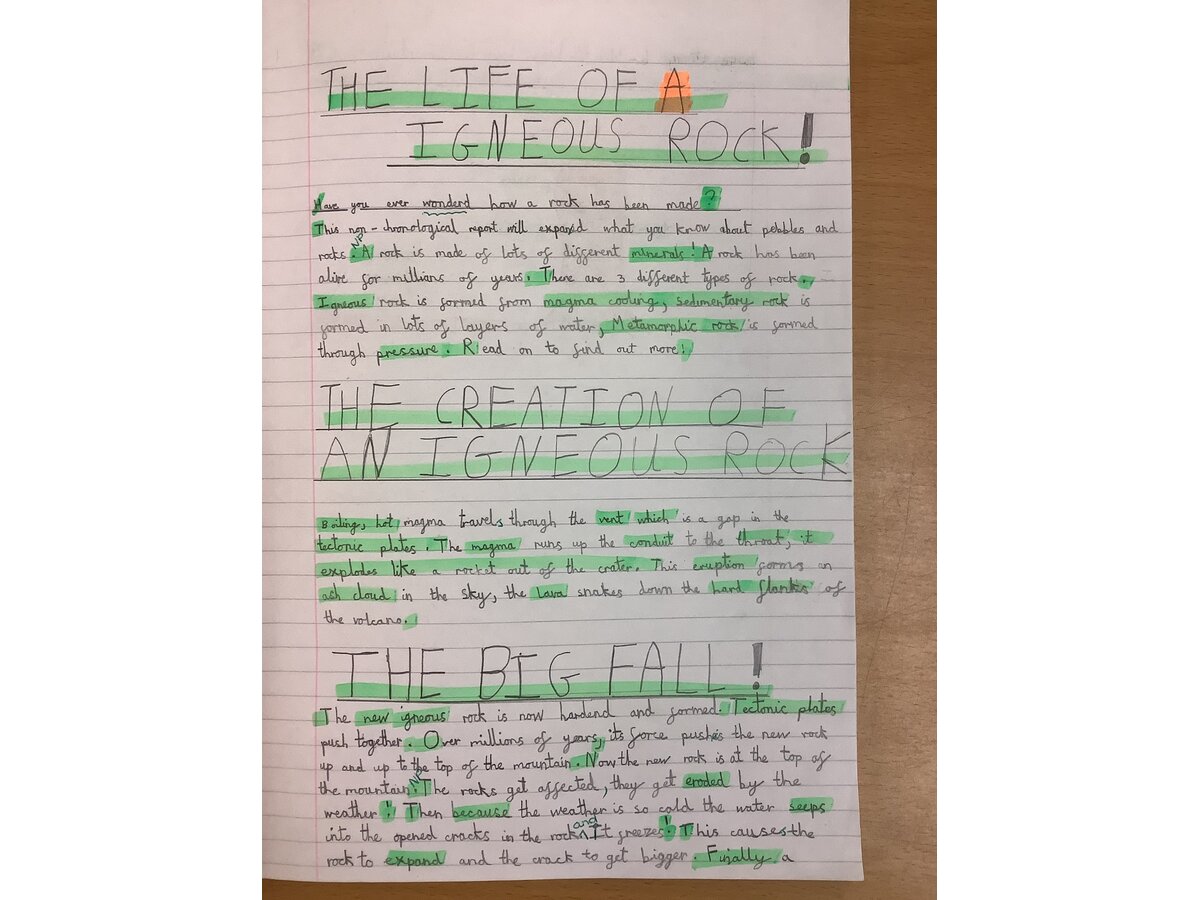 THE LIFE OF A
IGNEOUS ROCK!
Have you ever wonderd how a rock has been made?
This non-chronological report will expand what you know about pebbles and
NP
rocks. A rock is made of lots of different minerals! A rock has been
alive for millians of years. There are 3 different types of rock.
Igneous rock is formed from magma cooling, sedimentary rock is
formed in lots of layers of water, Metamorphic rock is formed
through pressure. Read on to find out more!
THE CREATION OF
AN IGNEOUS ROCK
Boiling, hot magma travels through the vent which is a gap in the
tectonic plates. The magma runs up the conduit to the throat, it
explodes like a rocket out of the crater. This eruption forms an
ash cloud in the sky, the lava snakes down the hard flanks of
the volcano.
THE BIG FALL!
The new igneous rock is now hardend and formed. Tectonic plates
push together. Over millions of years, its force pushes the new rock
up and up to the top of the mountain. Now the new rock is at the top of
NP
the mountain. The rocks get affected, they get eroded by the
weather! Then because the weather is so cold the water seeps
into the opened cracks in the rock and It freezes! This causes the
rock to expand and the crack to get bigger. Finally a